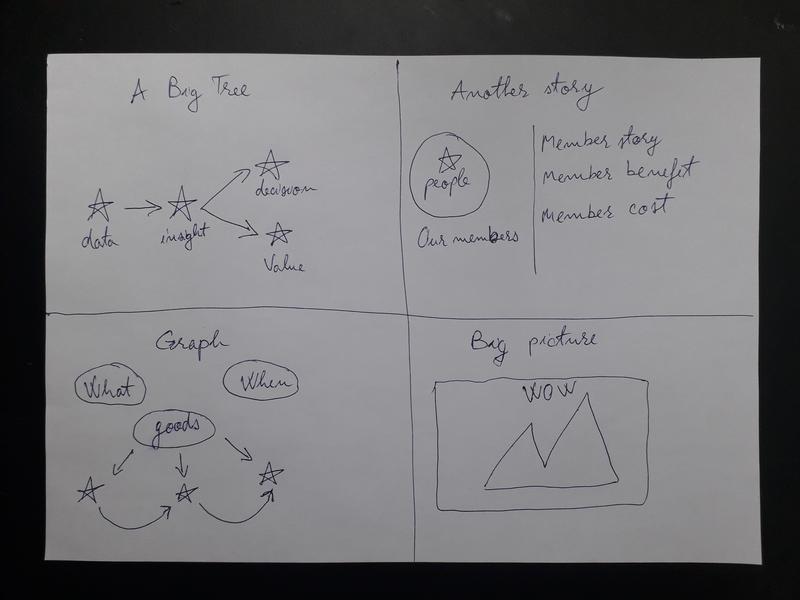 A Big Tree
data
insight
decision
Value
Another story
people
Our members
Member story
Member benefit
Member cost
Graph
What
When
goods
Big picture
WOW